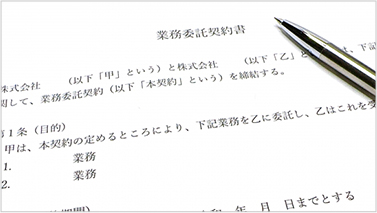 業務委託契約書
株式会社　　　（以下「甲」という）と株式会社　　　（以下「乙」　　　は、下記
関して、業務委託契約（以下「本契約」という）を締結する。
第1条（目的）
甲は、本契約の定めるところにより、下記業務を乙に委託し、乙はこれを受
1.　　　業務
2.　　　業務
年　月　日までとする